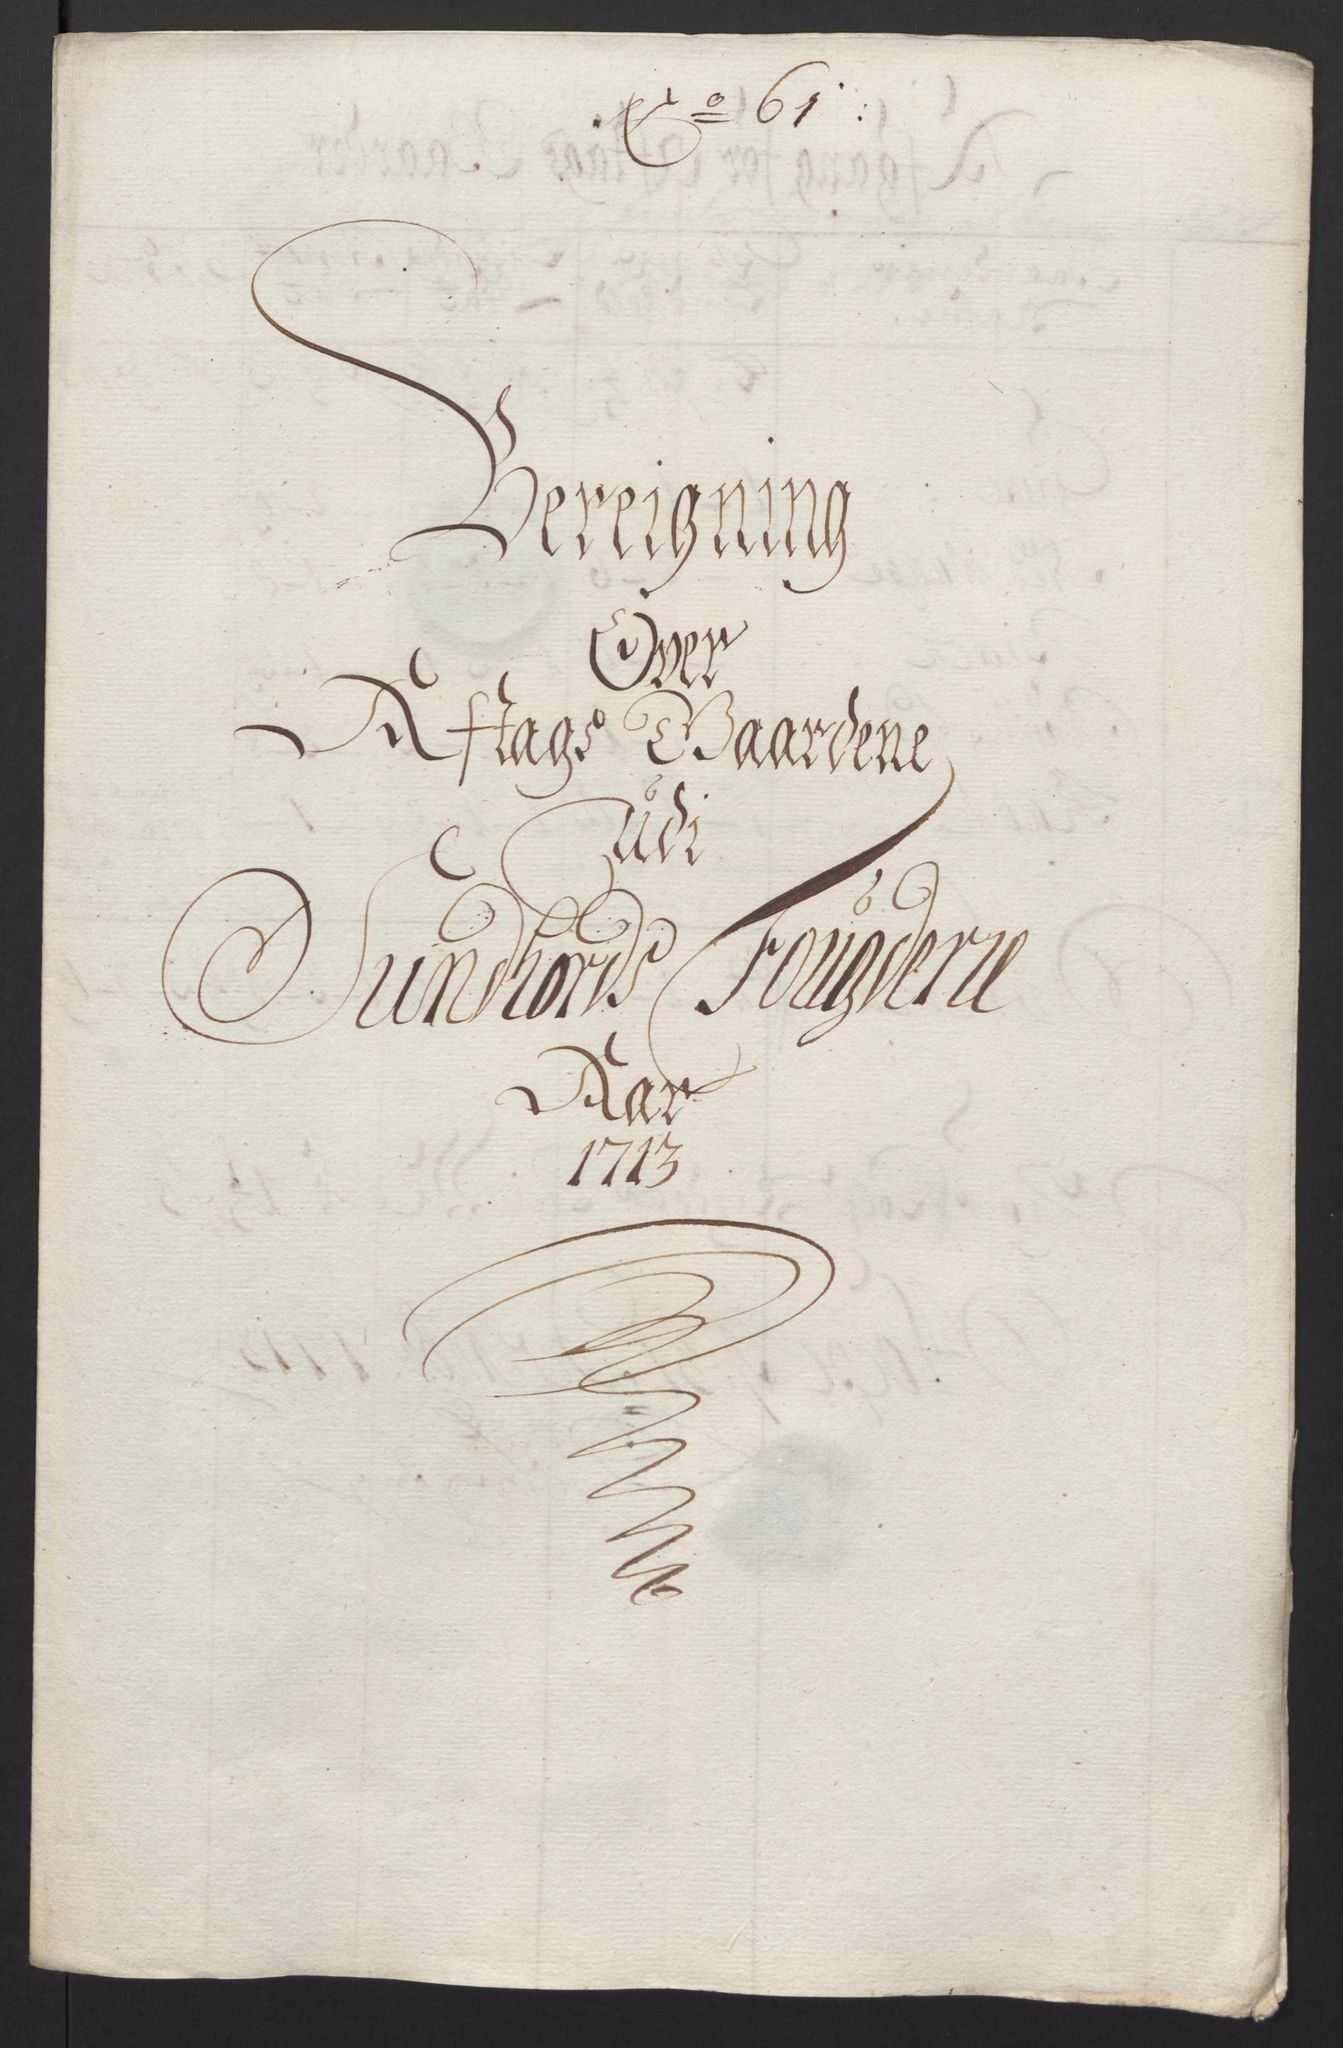 No 61:
Bereigning
Over
Aftags Gaardene
Udi
Sundhords Fougderie
Aar
1713